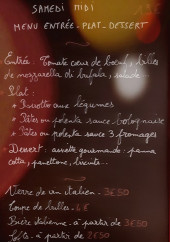 SAMEDI MIDI
MENU ENTRÉE - PLAT - DESSERT
Entrée : Tomate cœur de bœuf, billes
de mozzarella di bufala, salade
Plat :
* Risotto aux légumes
* Pâtes ou polenta sauce bolognaise
* Pâtes ou polenta sauce 3 fromages
* Dessert : assiette gourmande : panna
cotta, panettone, biscuits
Verre de vin italien - 3€50
Coupe de bulles - 4€
Bière italienne à partir de 3€50
à partir de 2€50